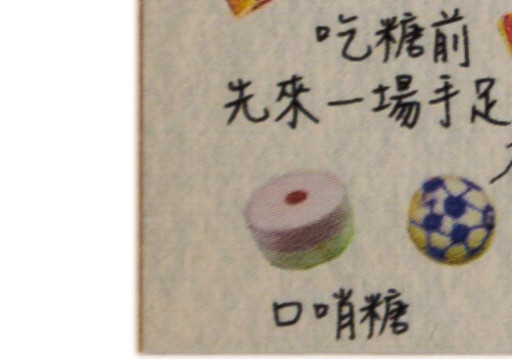 吃糖前
先來一場手足
口哨糖